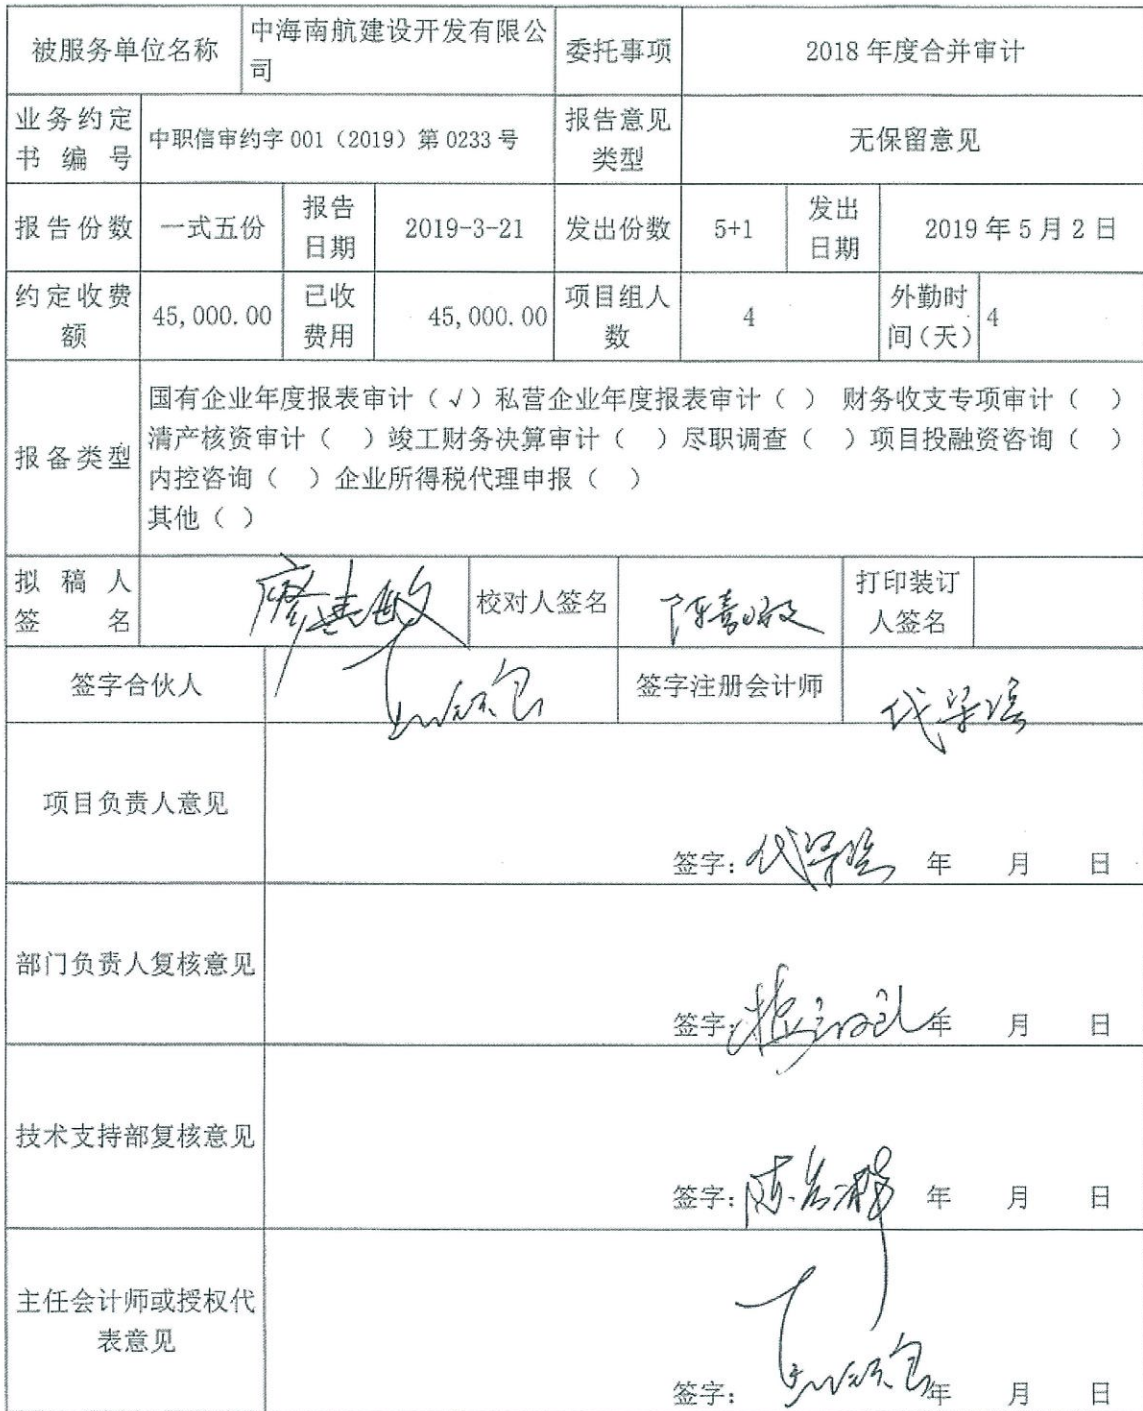 被服务单位名称 中海南航建设开发有限公 委托事项 2018 年度合并审计
司
业务约定 中职信审约字 001（2019）第 0233 号 报告意见 无保留意见
书编号 类型
报告份数 一式五份 报告 2019-3-21 发出份数 5+1 发出 2019 年 5 月 2 日
日期 日期
约定收费 45,000.00 已收 45,000.00 项目组人 4 外勤时 4
额 费用 数 间(天)
国有企业年度报表审计（√）私营企业年度报表审计（ ） 财务收支专项审计（ ）
报备类型 清产核资审计（ ）竣工财务决算审计（ ）尽职调查（ ）项目投融资咨询（ ）
内控咨询（ ）企业所得税代理申报（ ）
其他（ ）
拟稿人 校对人签名 打印装订
签名 人签名
签字合伙人 签字注册会计师
项目负责人意见
签字: 年 月 日
部门负责人复核意见
签字: 年 月 日
技术支持部复核意见
签字: 年 月 日
主任会计师或授权代
表意见
签字: 年 月 日